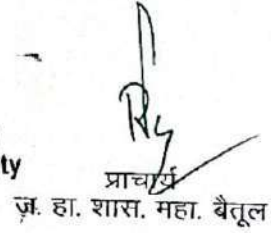 ty
प्राचार्य
ज. हा. शास. महा. बैतूल